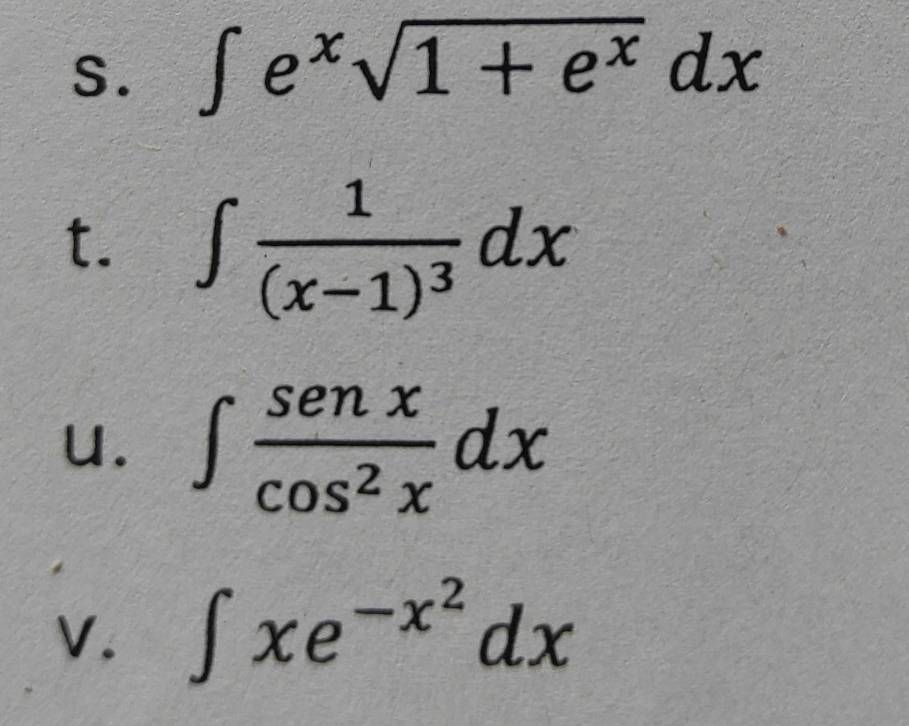 s. ∫ eˣ√(1 + eˣ) dx
t. ∫ 1/(x−1)³ dx
u. ∫ sen x/cos² x dx
v. ∫ xe^(−x²) dx